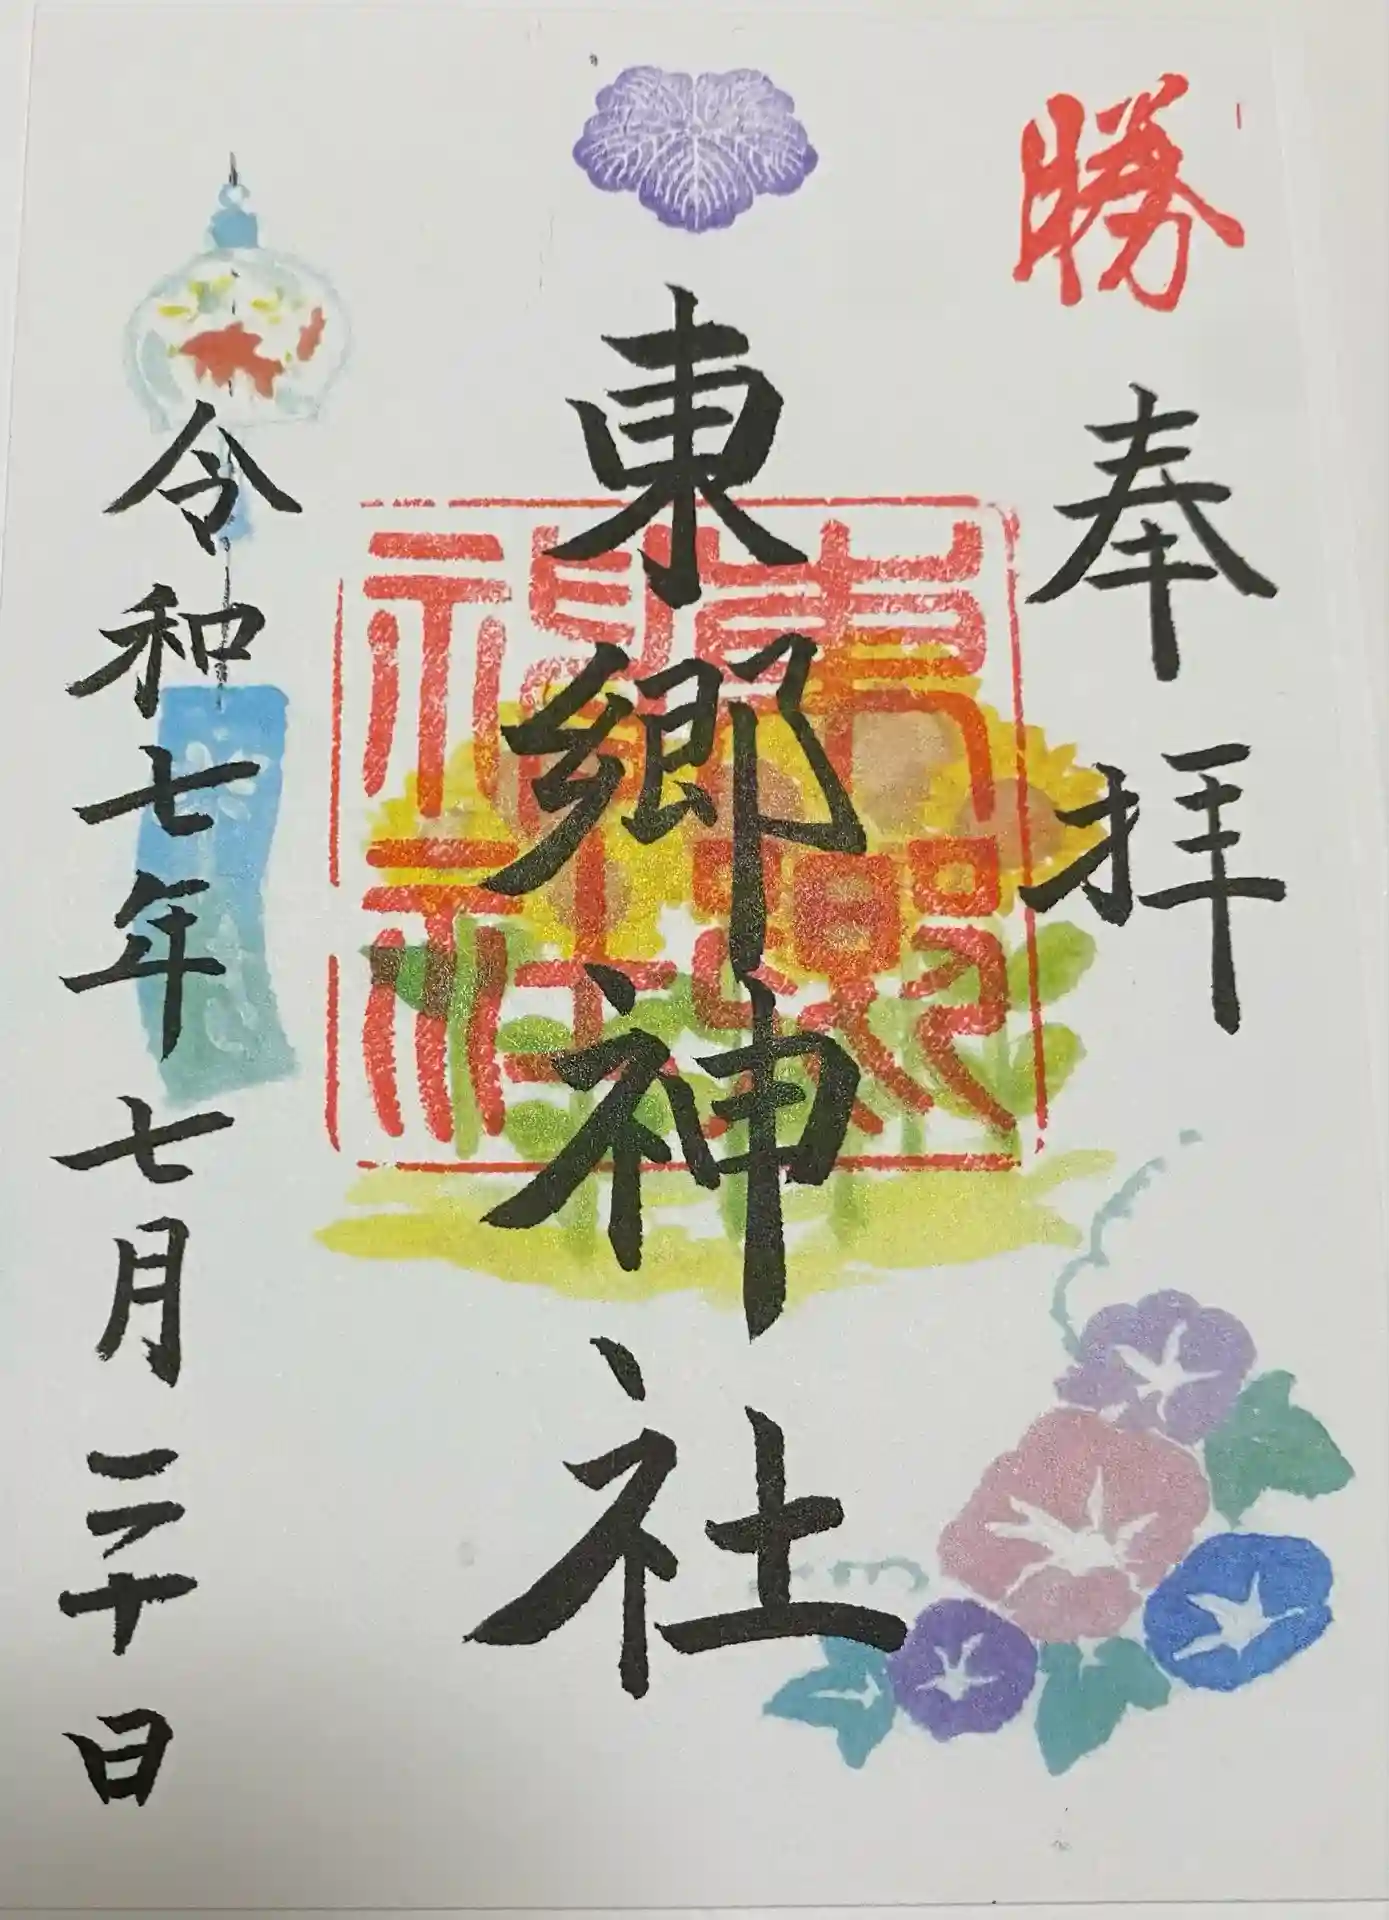 勝
奉拝
東郷神社
令和七年七月二十日